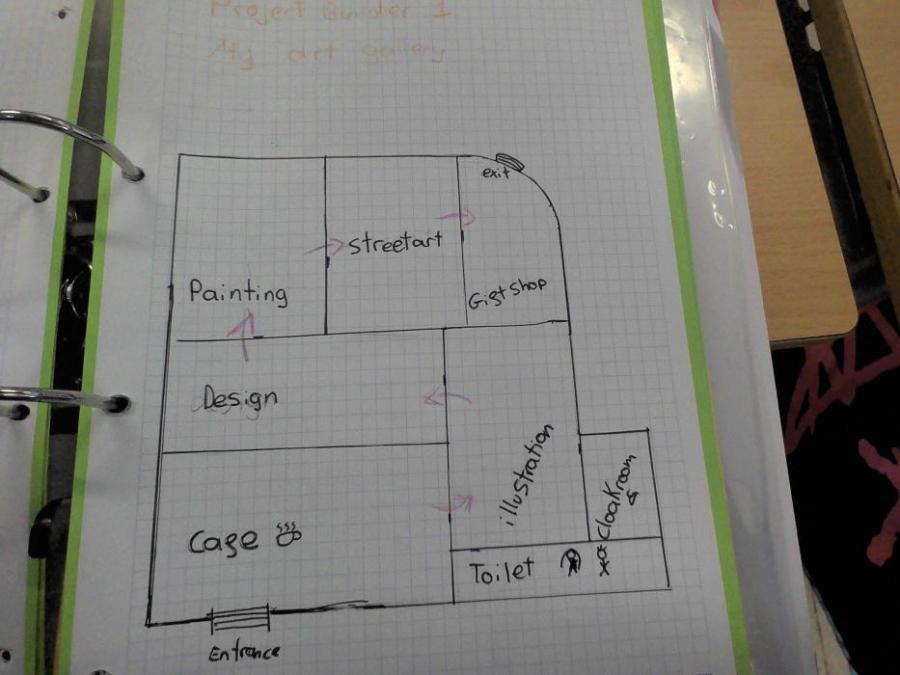 Project Builder 1
My art gallery
exit
Streetart
Painting
Gift shop
Design
illustration
Cloakroom
Cafe
Toilet
Entrance